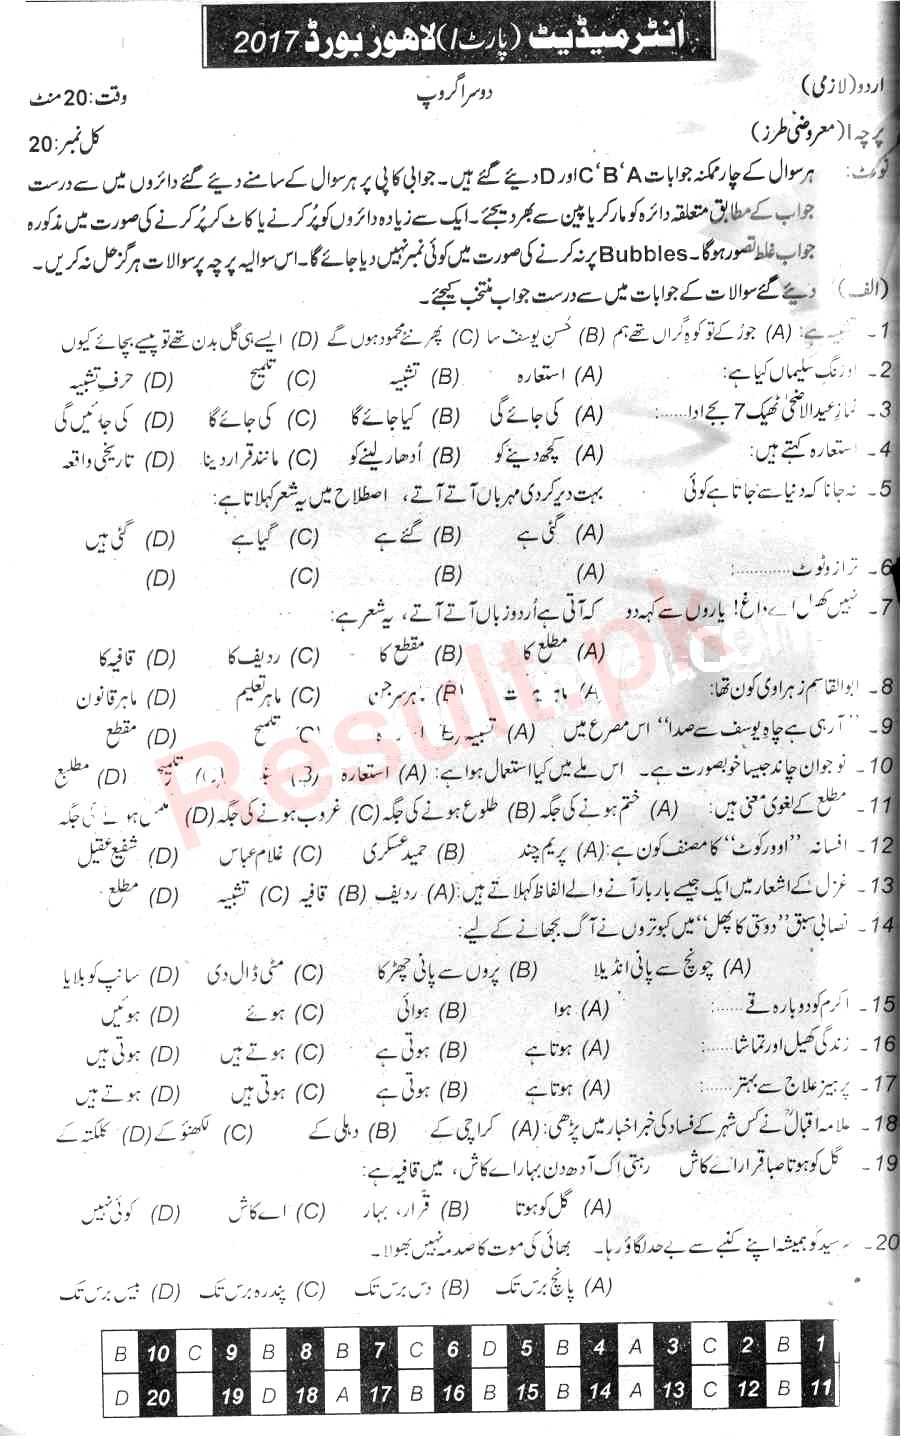 انٹرمیڈیٹ (پارٹ I) لاہور بورڈ 2017
اردو (لازمی) دوسرا گروپ وقت: 20 منٹ
پرچہ I (معروضی طرز) کل نمبر: 20
نوٹ: ہر سوال کے چار ممکنہ جوابات A‘B‘C اور D دیئے گئے ہیں۔ جوابی کاپی پر ہر سوال کے سامنے دیئے گئے دائروں میں سے درست
جواب کے مطابق متعلقہ دائرہ کو مارکر یا پین سے بھر دیجئے۔ ایک سے زیادہ دائروں کو پُر کرنے یا کاٹ کر پُر کرنے کی صورت میں مذکورہ
جواب غلط تصور ہوگا۔ Bubbles پر نہ کرنے کی صورت میں کوئی نمبر نہیں دیا جائے گا۔ اس سوالیہ پرچہ پر سوالات ہرگز حل نہ کریں۔
(الف) دیئے گئے سوالات کے جوابات میں سے درست جواب منتخب کیجئے۔
1۔ تشبیہ ہے: (A) جوڑ کے تو کوہ گراں تھے ہم (B) حُسنِ یوسف سا (C) پھر نئے محمود ہوں گے (D) ایسے ہی گل بدن تھے تو پیسے بچائے کیوں
2۔ اورنگِ سلیماں کیا ہے: (A) استعارہ (B) تشبیہ (C) تلمیح (D) حرفِ تشبیہ
3۔ نمازِ عیدالاضحیٰ ٹھیک 7 بجے ادا......: (A) کی جائے گی (B) کیا جائے گا (C) کی جائے گا (D) کی جائیں گی
4۔ استعارہ کہتے ہیں: (A) کچھ دینے کو (B) اُدھار لینے کو (C) مانند قرار دینا (D) تاریخی واقعہ
5۔ نہ جانا کہ دنیا سے جاتا ہے کوئی بہت دیر کر دی مہرباں آتے آتے، اصطلاح میں یہ شعر کہلاتا ہے:
(A) گئی ہے (B) گئے ہے (C) گیا ہے (D) گئی ہیں
6۔ ترازو ٹوٹ ............:
(A) (B) (C) (D)
7۔ نہیں کھیل اے داغ! یاروں سے کہہ دو کہ آتی ہے اُردو زباں آتے آتے، یہ شعر ہے:
(A) مطلع کا (B) مقطع کا (C) ردیف کا (D) قافیہ کا
8۔ ابوالقاسم زہراوی کون تھا: (A) ماہر (B) ماہر سرجن (C) ماہر تعلیم (D) ماہر قانون
9۔ ’’آ رہی ہے چاہِ یوسف سے صدا‘‘ اس مصرع میں (A) تشبیہ (C) تلمیح (D) مقطع
10۔ نوجوان چاند جیسا خوبصورت ہے۔ اس جملے میں کیا استعمال ہوا ہے: (A) استعارہ (C) تلمیح (D) مطلع
11۔ مطلع کے لغوی معنی ہیں: (A) ختم ہونے کی جگہ (B) طلوع ہونے کی جگہ (C) غروب ہونے کی جگہ (D) ہونے کی جگہ
12۔ افسانہ ’’اوور کوٹ‘‘ کا مصنف کون ہے: (A) پریم چند (B) حمید عسکری (C) غلام عباس (D) شفیع عقیل
13۔ غزل کے اشعار میں ایک جیسے بار بار آنے والے الفاظ کہلاتے ہیں: (A) ردیف (B) قافیہ (C) تشبیہ (D) مطلع
14۔ نصابی سبق ’’دوستی کا پھل‘‘ میں کبوتروں نے آگ بجھانے کے لیے:
(A) چونچ سے پانی انڈیلا (B) پروں سے پانی چھڑکا (C) مٹی ڈال دی (D) سانپ کو بلایا
15۔ اکرم کو دوبارہ قے......: (A) ہوا (B) ہوائی (C) ہوئے (D) ہوئیں
16۔ زندگی کھیل اور تماشا......: (A) ہوتا ہے (B) ہوتی ہے (C) ہوتے ہیں (D) ہوتی ہیں
17۔ پرہیز علاج سے بہتر......: (A) ہوتا ہے (B) ہوتی ہے (C) ہوتی ہیں (D) ہوتے ہیں
18۔ علامہ اقبالؒ نے کس شہر کے فساد کی خبر اخبار میں پڑھی: (A) کراچی کے (B) دہلی کے (C) لکھنؤ کے (D) کلکتہ کے
19۔ گل کو ہوتا صبا قرار اے کاش رہتی اک آدھ دن بہار اے کاش، میں قافیہ ہے:
(A) گل کو ہوتا (B) قرار، بہار (C) اے کاش (D) کوئی نہیں
20۔ سرسید کو ہمیشہ اپنے کنبے سے بے حد لگاؤ رہا۔ بھائی کی موت کا صدمہ نہیں بھولا۔
(A) پانچ برس تک (B) دس برس تک (C) پندرہ برس تک (D) بیس برس تک
B 10 C 9 B 8 B 7 C 6 D 5 B 4 A 3 C 2 B 1
D 20 19 D 18 A 17 B 16 B 15 B 14 A 13 C 12 B 11
Result.pk